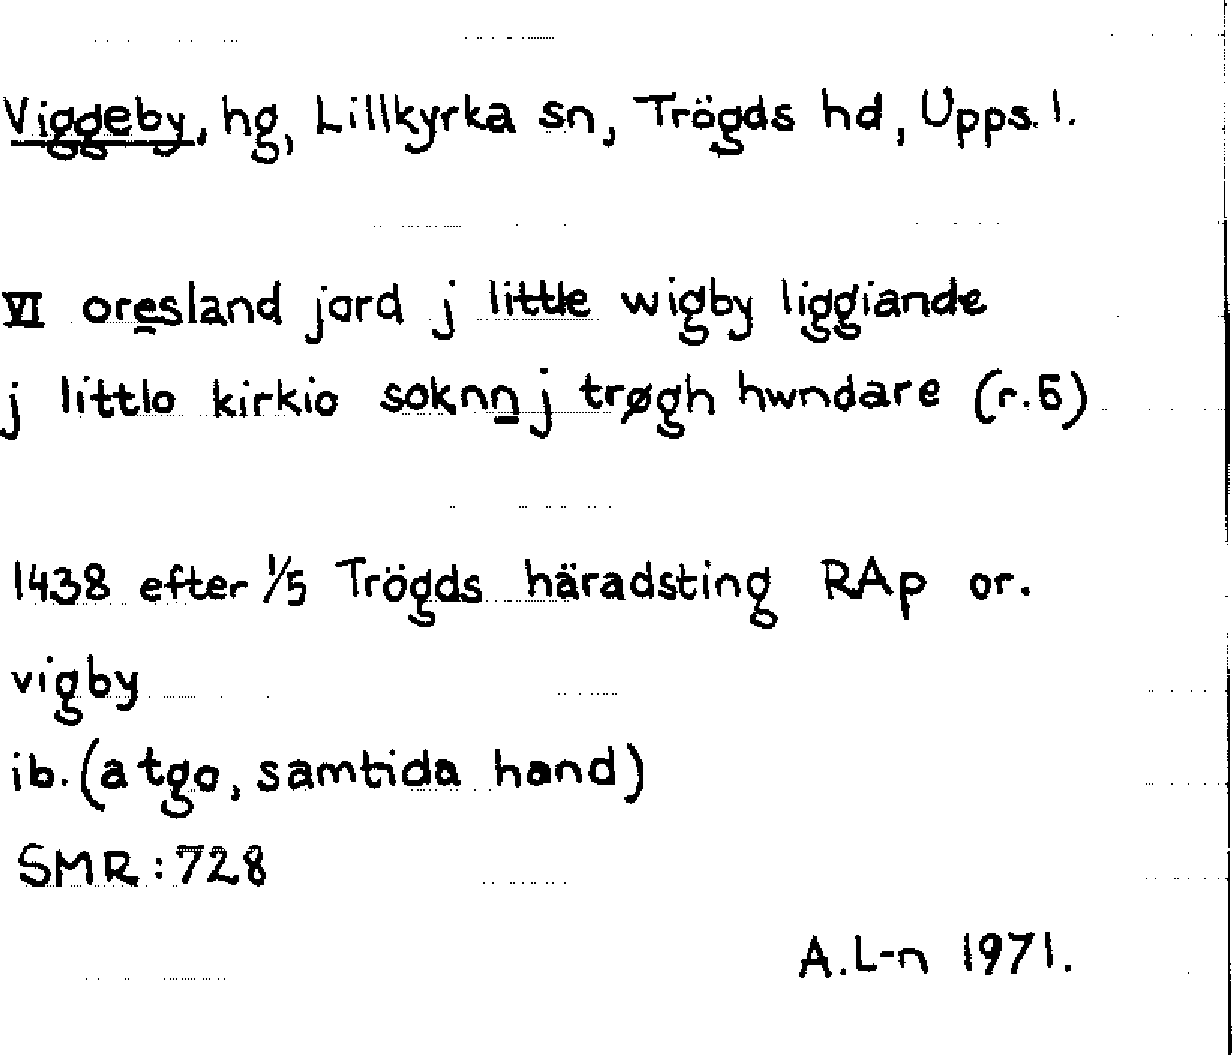 Viggeby, hg, Lillkyrka sn, Trögds hd, Upps. l.
VI oresland jord j little wigby liggiande
j littlo kirkio soknn j trøgh hwndare (r.5)
1438 efter 1/5 Trögds häradsting RAp or.
vigby
ib. (atgo, samtida hand)
SMR: 728
A.L-n 1971.